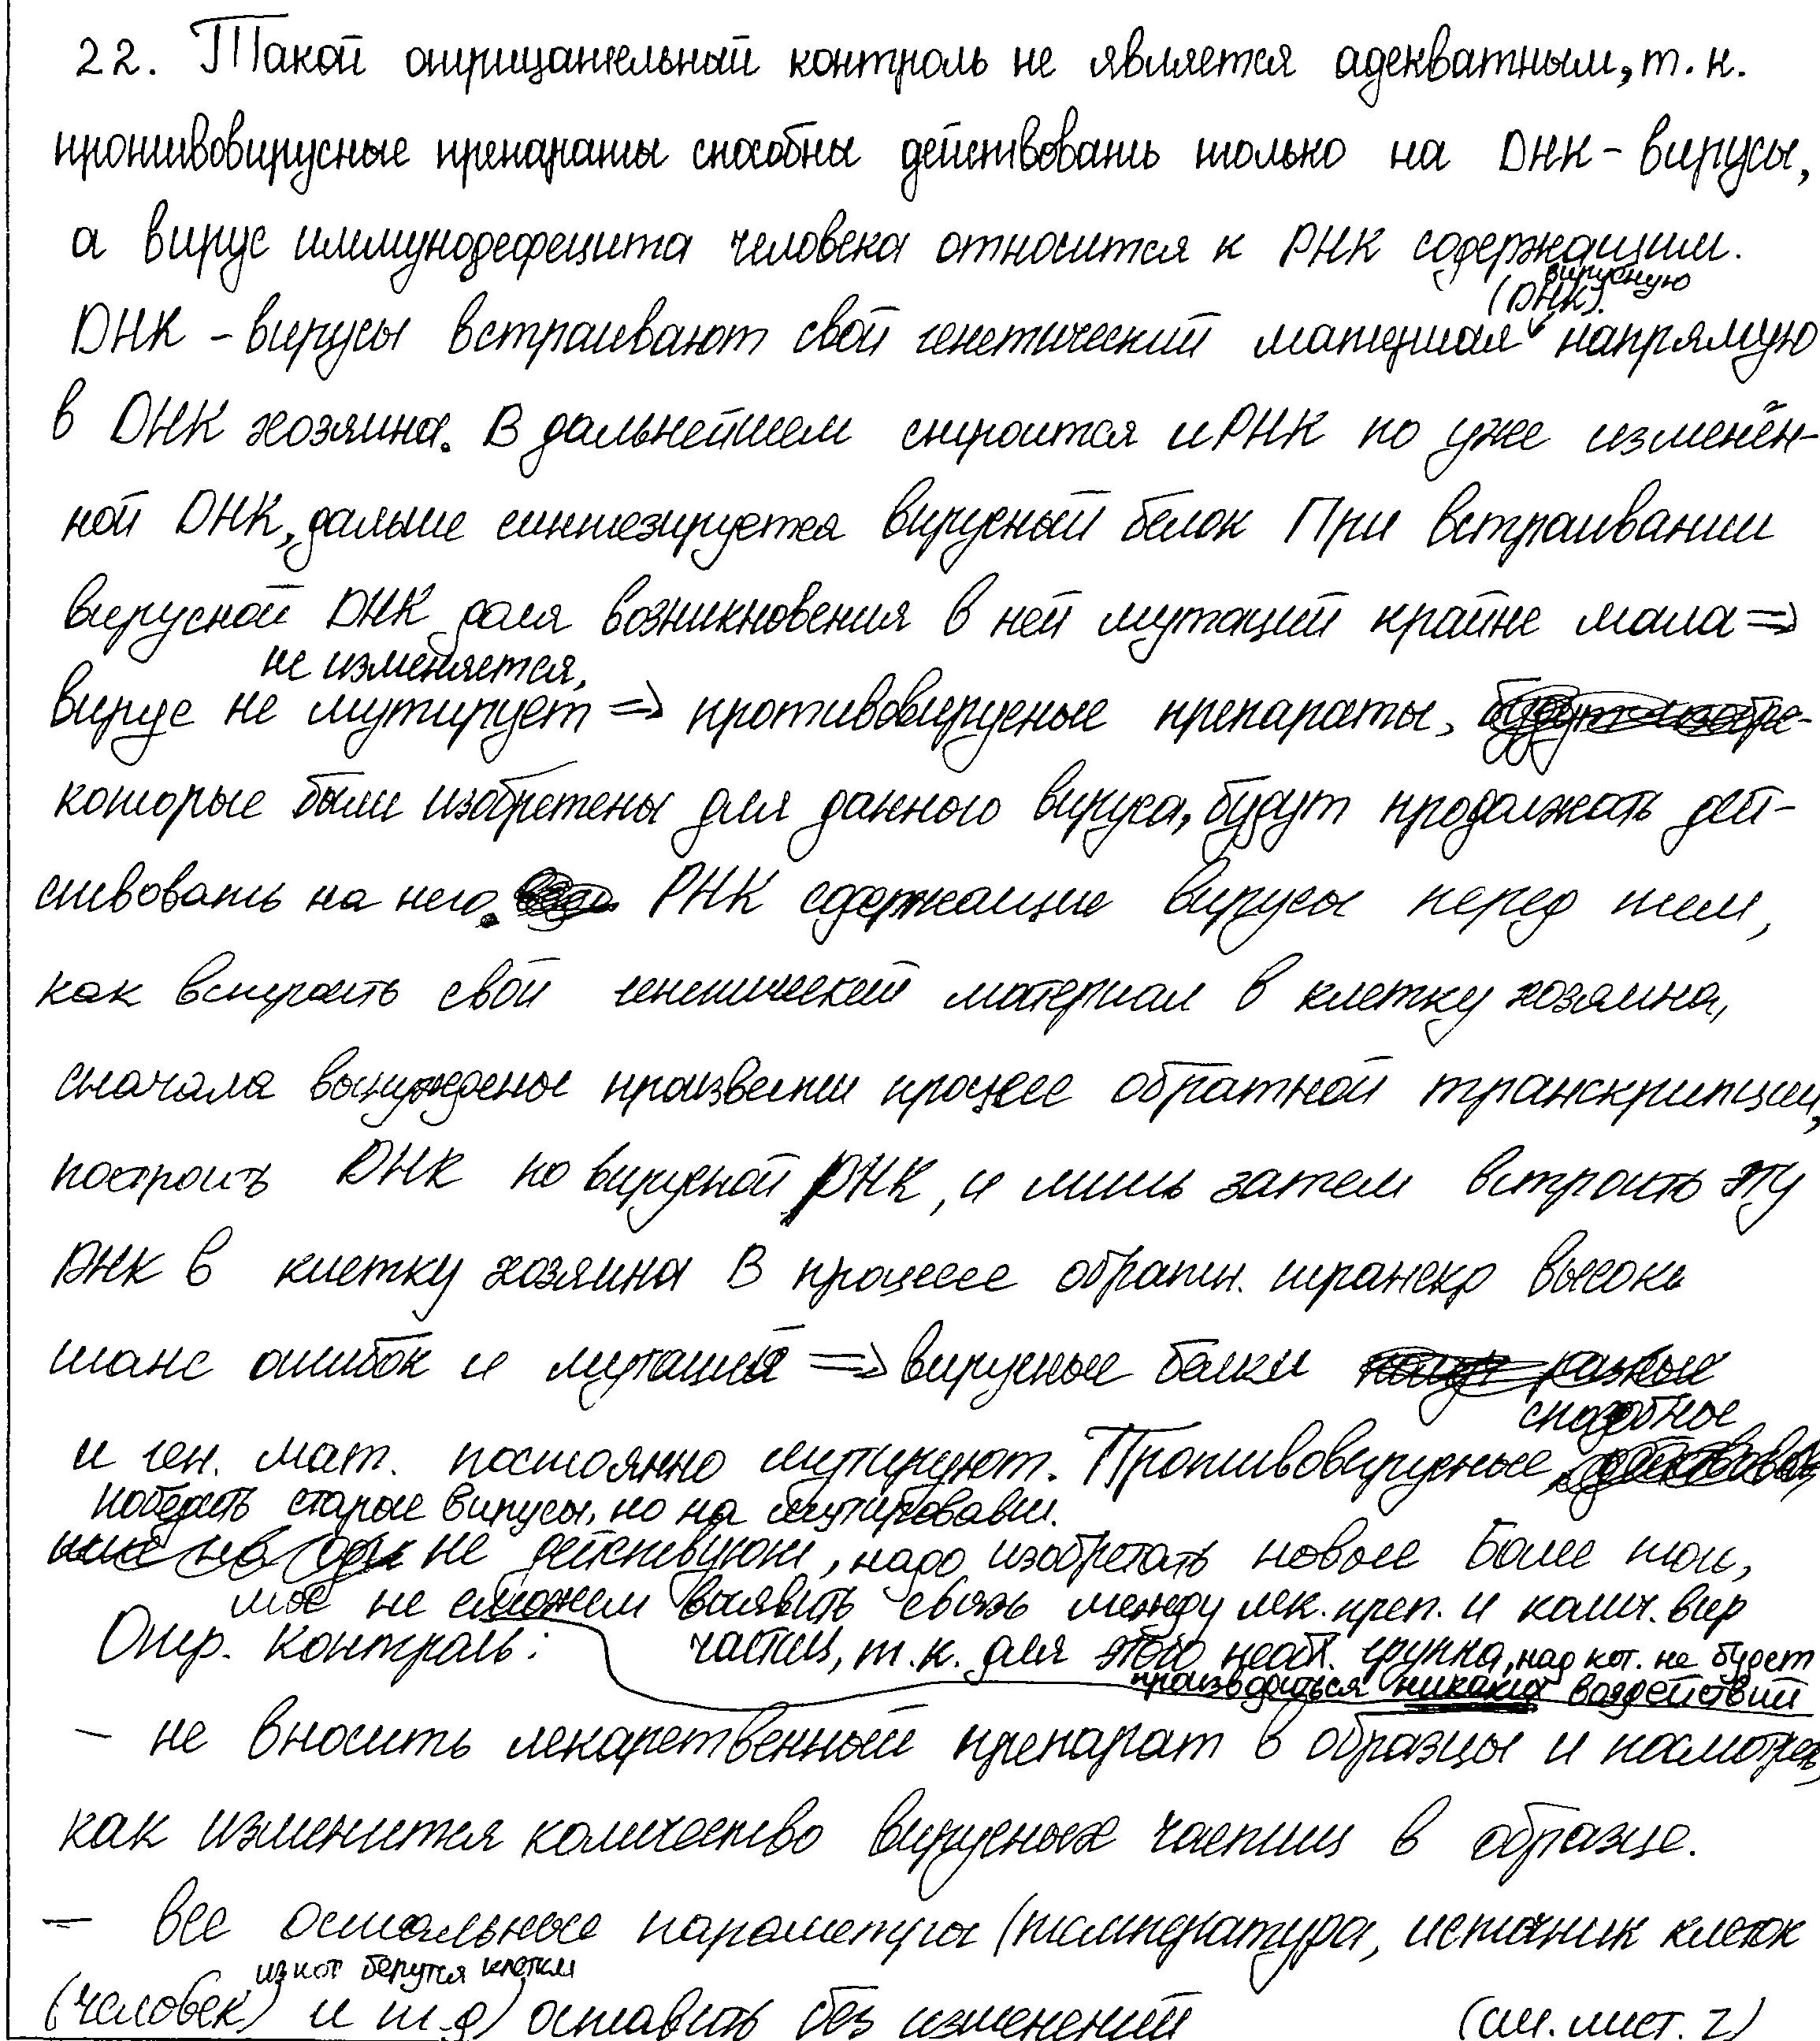 22. Такой отрицательный контроль не является адекватным, т. к.
противовирусные препараты способны действовать только на ДНК - вирусы,
а вирус иммунодефецита человека относится к РНК содержащим.
вирусную
(ДНК).
ДНК - вирусы встраивают свой генетический материал напрямую
в ДНК хозяина. В дальнейшем строится иРНК по уже изменён-
ной ДНК, дальше синтезируется вирусный белок При встраивании
вирусной ДНК доля возникновения в ней мутаций крайне мала =>
не изменяется,
вирус не мутирует => противовирусные препараты,
которые были изобретены для данного вируса, будут продолжать дей-
ствовать на него. РНК содержащие вирусы перед тем,
как встроить свой генетический материал в клетку хозяина,
сначала вынуждены произвести процесс обратной транскрипции,
построить ДНК по вирусной РНК, и лишь затем встроить эту
ДНК в клетку хозяина В процессе обратн. транскр высок
шанс ошибок и мутаций => вирусные белки
способные
и ген. мат. постоянно мутируют. Противовирусные
победить старые вирусы, но на мутировавш.
не действуют, надо изобретать новые Более того,
мы не сможем выявить связь между лек. преп. и колич. вир
Отр. контроль: частиц, т. к. для этого необх. группа, над кот. не будет
производиться никаких воздействий
- не вносить лекарственный препарат в образцы и посмотреть,
как изменится количество вирусных частиц в образце.
- все остальные параметры (температура, источник клеток
из кот берутся клетки
(человек) и т. д) оставить без изменений (см. лист. 2)